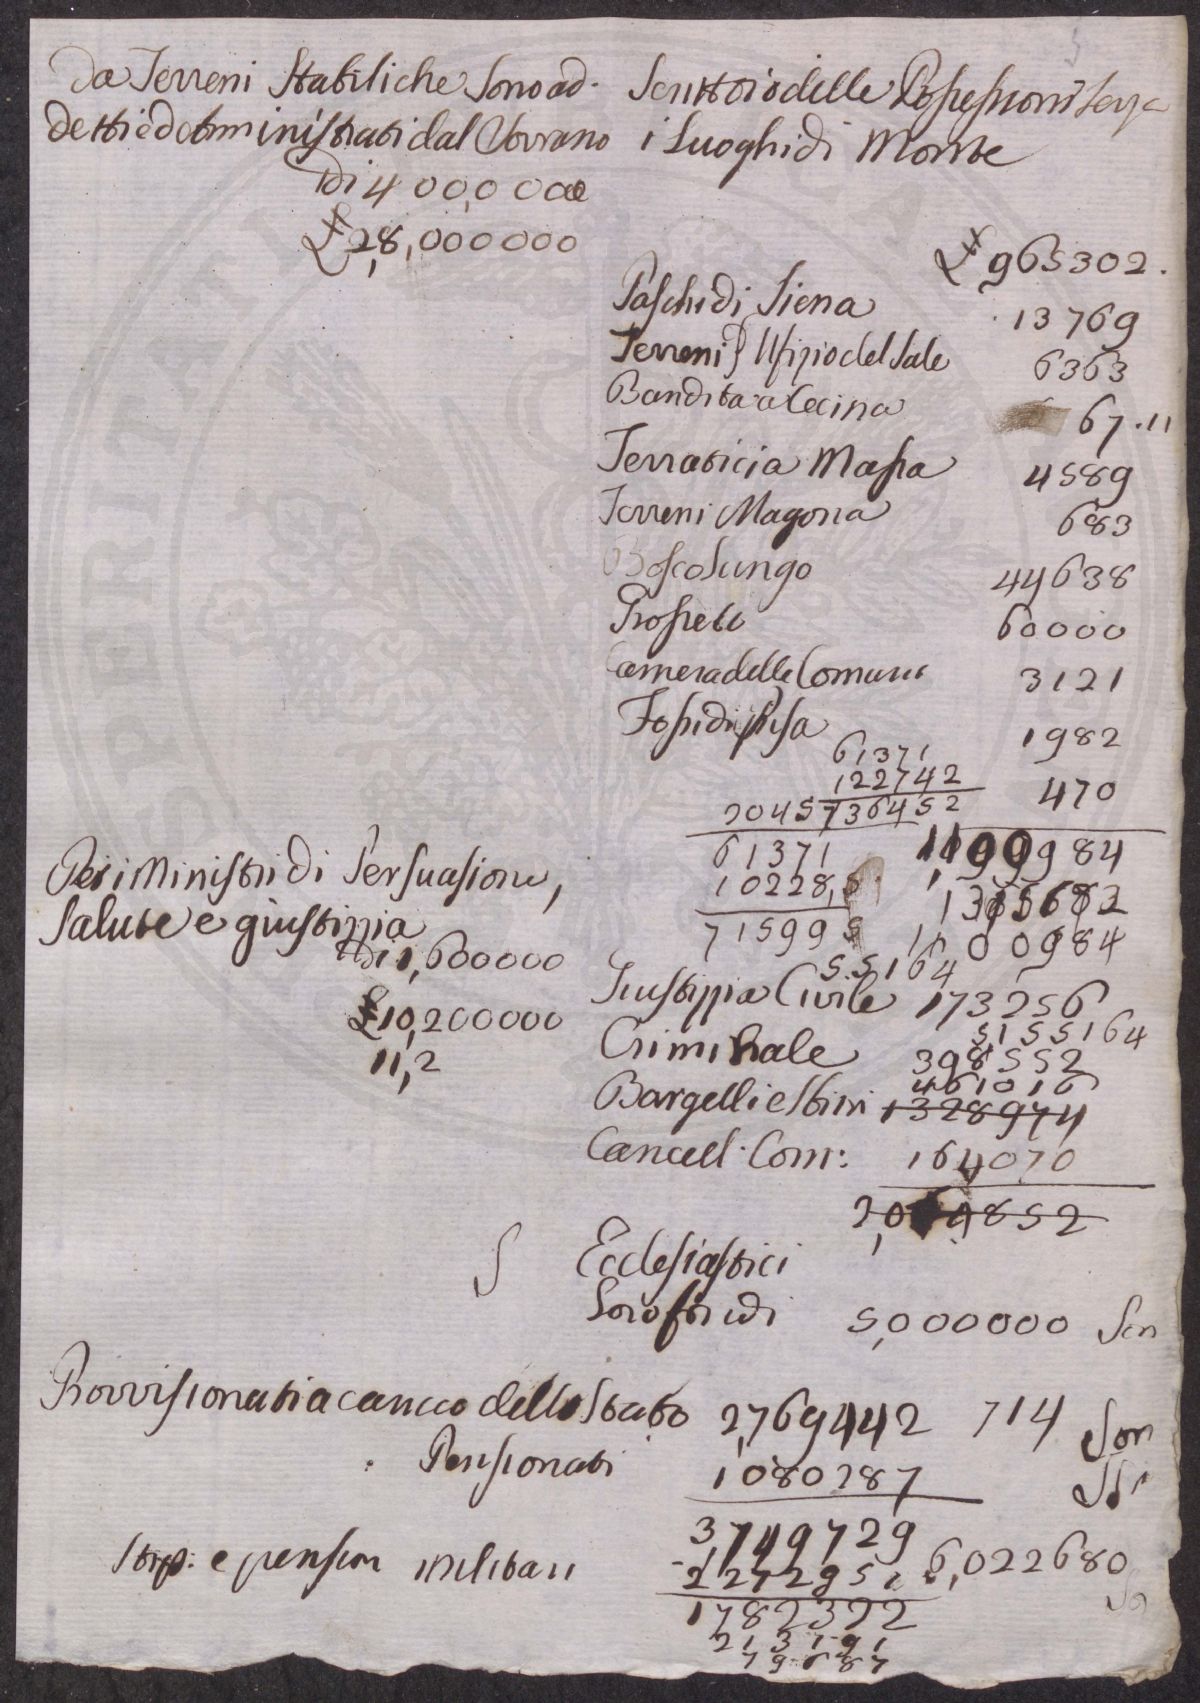 Da Terreni Stabili che Sono ad-
detti ed aministrati dal Sovrano
di 400,000
£ 28,000000
Scrittoio delle Possessioni senza
i Luoghi di Monte
£ 965302.
Paschi di Siena 13769
Terreni Ufizio del Sale 6363
Bandita a Cecina 67.11
Terraticia Massa 4589
Terreni Magona 683
Boscolungo 44638
60000
Camera delle Comuni 3121
Fossi di Pisa 1982
61371
122742 470
20457 36452
61371 1,199984
10228,5
71599 5 1,000984
Per i Ministri di Persuasione,
Salute e giustizzia
di 1,600000
£ 10,200000
11,2
55164
Giustizzia Civile 173256
5155164
Criminale 398552
461016
Bargelli e Sbirri 1328974
Cancell. Com: 164070
Ecclesiastici
Sono fondi 5,000000
Provvisionati a carico dello Stato 2,769442 714
Pensionati 1080287
3,749729
Stip: e pension militari 6,022680
1782322